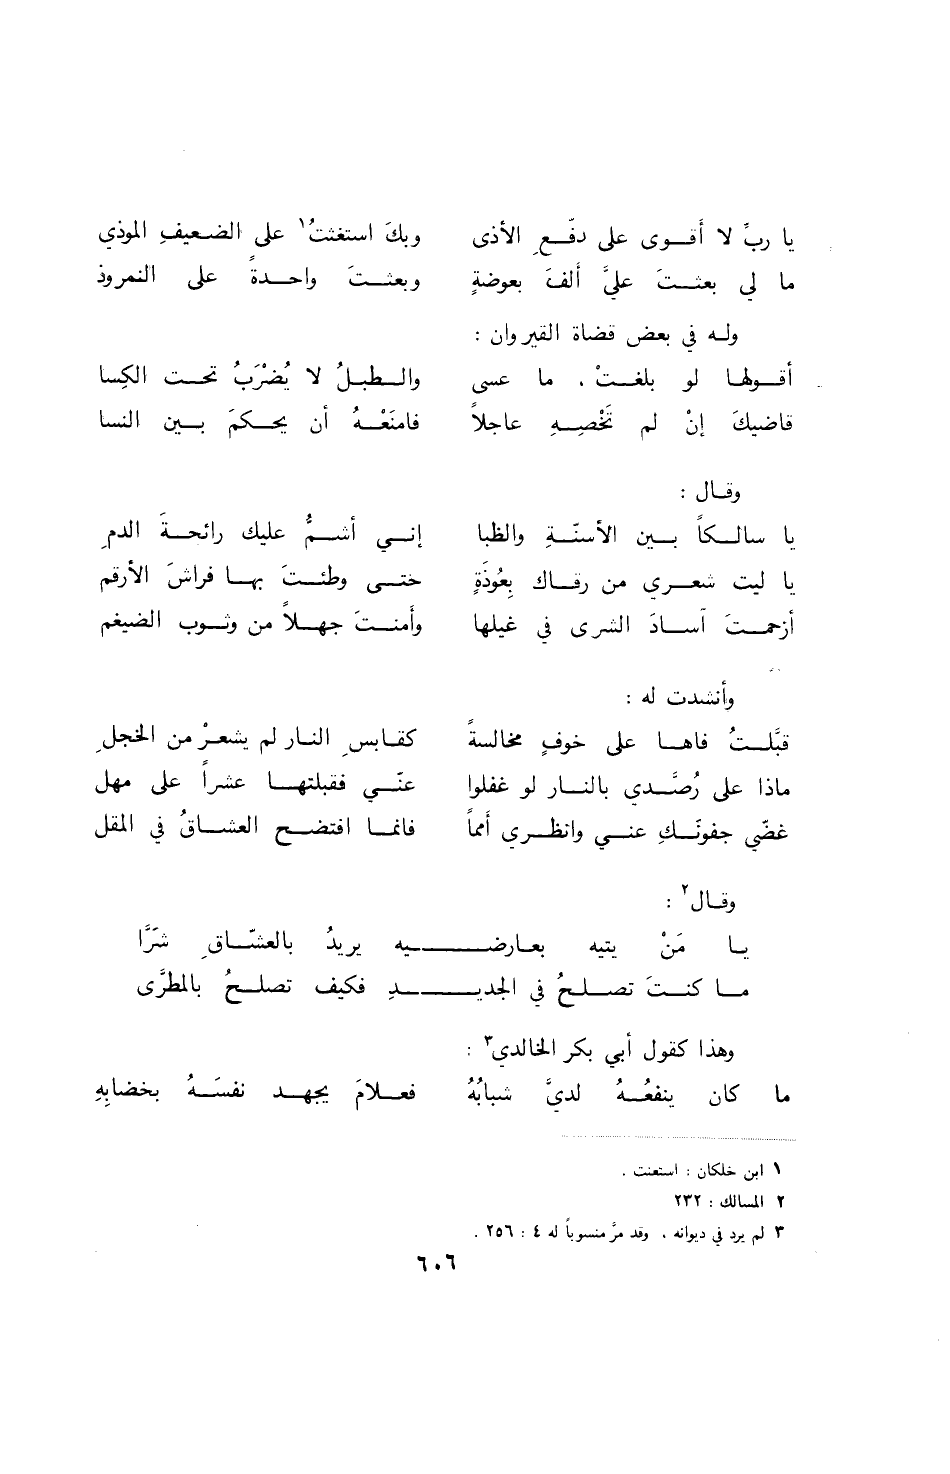 يا ربِّ لا أَقوى على دفعِ الأذى وبكَ استغثتُ١ على الضعيفِ الموذي
ما لي بعثتَ عليَّ ألفَ بعوضةٍ وبعثتَ واحدةً على النمروذ
وله في بعض قضاة القيروان :
أقولها لو بلغتْ ، ما عسى والطبلُ لا يُضْرَبُ تحت الكِسا
قاضيكَ إنْ لم تَخْصِهِ عاجلاً فامنَعْهُ أن يحكمَ بين النسا
وقال :
يا سالكاً بين الأسنّةِ والظبا إني أشمُّ عليك رائحةَ الدمِ
يا ليت شعري من رقاك بِعُوذَةٍ حتى وطئتَ بها فراشَ الأرقم
أزحمتَ آسادَ الشرى في غيلها وأمنتَ جهلاً من وثوب الضيغم
وأنشدت له :
قبَّلتُ فاها على خوفٍ مخالسةً كقابسِ النار لم يشعرْ من الخجلِ
ماذا على رُصَّدي بالنار لو غفلوا عنّي فقبلتها عشراً على مهل
غضّي جفونَكِ عني وانظري أمماً فإنما افتضح العشاقُ في المقل
وقال٢ :
يا مَنْ يتيه بعارضيه يريدُ بالعشّاقِ شرَّا
ما كنتَ تصلحُ في الجديدِ فكيف تصلحُ بالمطرَّى
وهذا كقول أبي بكر الخالدي٣ :
ما كان ينفعُهُ لديَّ شبابُهُ فعلامَ يجهد نفسَهُ بخضابِهِ
١ ابن خلكان : استعنت .
٢ المسالك : ٢٣٢
٣ لم يرد في ديوانه ، وقد مرَّ منسوباً له ٤ : ٢٥٦ .
٦٠٦